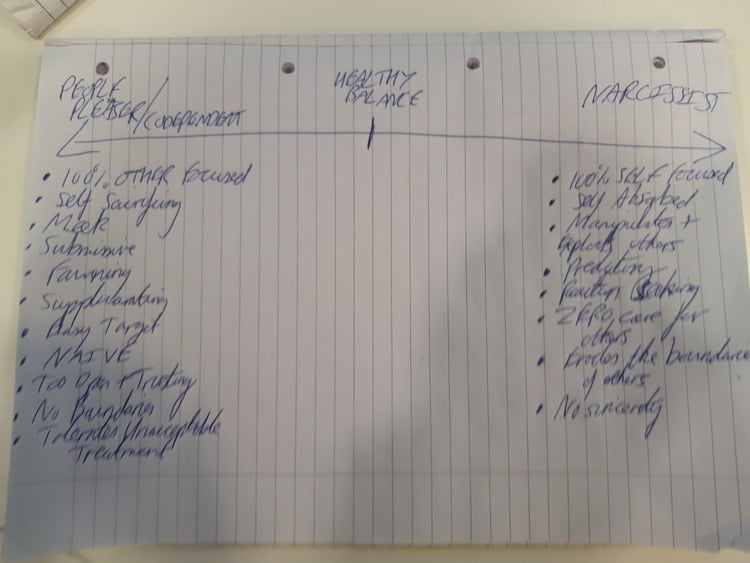 PEOPLE
PLEASER/CODEPENDENT
HEALTHY
BALANCE
NARCISSIST
• 100% OTHER focused
• Self Sacrificing
• Meek
• Submissive
• Fawning
• Supplicating
• Easy Target
• NAIVE
• Too Open + Trusting
• No Boundaries
• Tolerates Unacceptable
Treatment
• 100% SELF focused
• Self Absorbed
• Manipulates +
Exploits others
• Predatory
• Reaction Seeking
• ZERO care for
others
• Erodes the boundaries
of others
• No sincerity